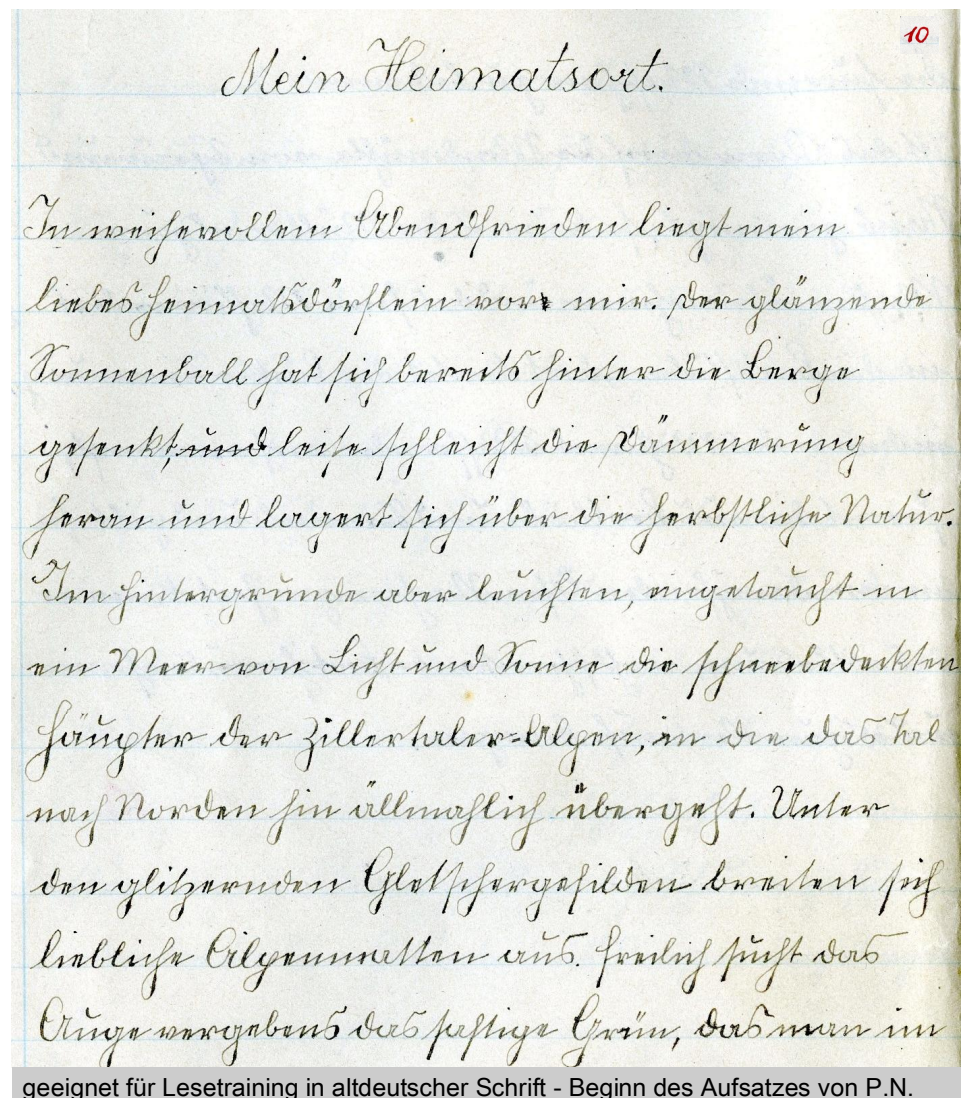 10
Mein Heimatsort.
In weihevollem Abendfrieden liegt mein
liebes Heimatsdörflein vor mir. Der glänzende
Sonnenball hat sich bereits hinter die Berge
gesenkt, und leise schleicht die Dämmerung
heran und lagert sich über die herbstliche Natur.
Im Hintergrunde aber leuchten, eingetaucht in
ein Meer von Licht und Sonne die schneebedeckten
Häupter der Zillertaler-Alpen, in die das Tal
nach Norden hin allmählich übergeht. Unter
den glitzernden Gletschergefilden breiten sich
liebliche Alpenmatten aus. Freilich sucht das
Auge vergebens das saftige Grün, das man im
geeignet für Lesetraining in altdeutscher Schrift - Beginn des Aufsatzes von P.N.